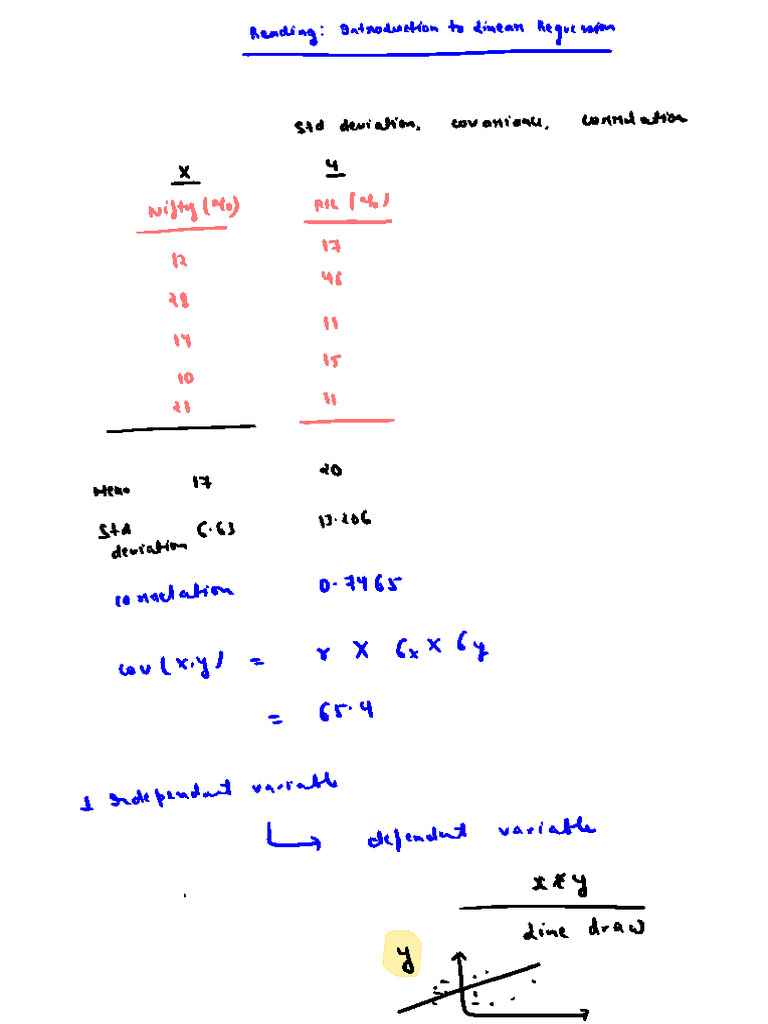 Reading: Introduction to Linear Regression
Std deviation, covariance, correlation
X Y
Nifty (%) RIL (%)
12 17
28 46
14 11
10 15
21 11
Mean 17 20
Std deviation 6.63 13.206
correlation 0.7465
cov(x,y) = r X σx X σy
= 65.4
1 Independent variable
dependent variable
x & y
Line draw
y